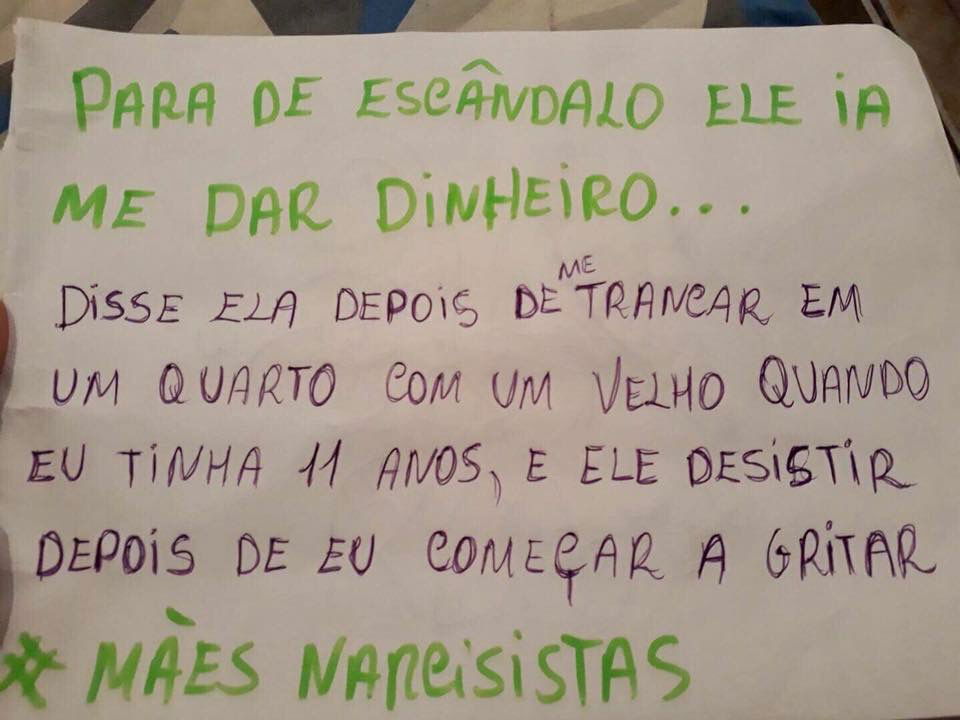 PARA DE ESCÂNDALO ELE IA
ME DAR DINHEIRO...
DISSE ELA DEPOIS DE ME TRANCAR EM
UM QUARTO COM UM VELHO QUANDO
EU TINHA 11 ANOS, E ELE DESISTIR
DEPOIS DE EU COMEÇAR A GRITAR
* MÃES NARCISISTAS